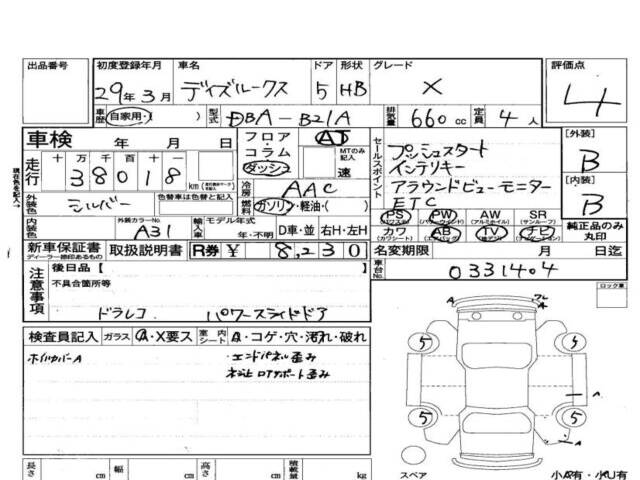 出品番号 初度登録年月 車名 ドア 形状 グレード 評価点
29年3月 デイズルークス 5 HB X 4
車歴 自家用・( ) 型式 DBA-B21A 排気量 660cc 定員 4人
車検 年 月 日 フロア・コラム・ダッシュ AT MTのみ記入 速
走行 十万千百十 38018 km
セールスポイント
プッシュスタート
インテリキー
アラウンドビューモニター
ETC
[外装] B
[内装] B
冷房 AAC
外装色 シルバー 色替車は色替と記入
燃料 ガソリン・軽油・( )
内装色 外装カラーNo. A31 輸入車 モデル年式 年・不明 D車・並 右H・左H
PS PW AW SR
(パワステ) (パワーウィンドウ) (アルミホイル) (サンルーフ)
カワ AB TV ナビ
(カワシート) (エアバッグ) (ナビゲーション)
純正品のみ丸印
新車保証書 取扱説明書 R券 ¥ 8,230
名変期限 月 日迄
車台No. 0331404
注意事項 後日品[ ]
不具合箇所等
ドラレコ パワースライドドア
ロック車
検査員記入 ガラス A・X要ス 室内シート A・コゲ・穴・汚れ・破れ
ホイルカバーA ・エンドパネル歪み
A A
5 5
A
5 5
A
スペア
小A有・小U有
長さ cm 幅 cm 高さ cm 積載量 kg
現在色を記入→